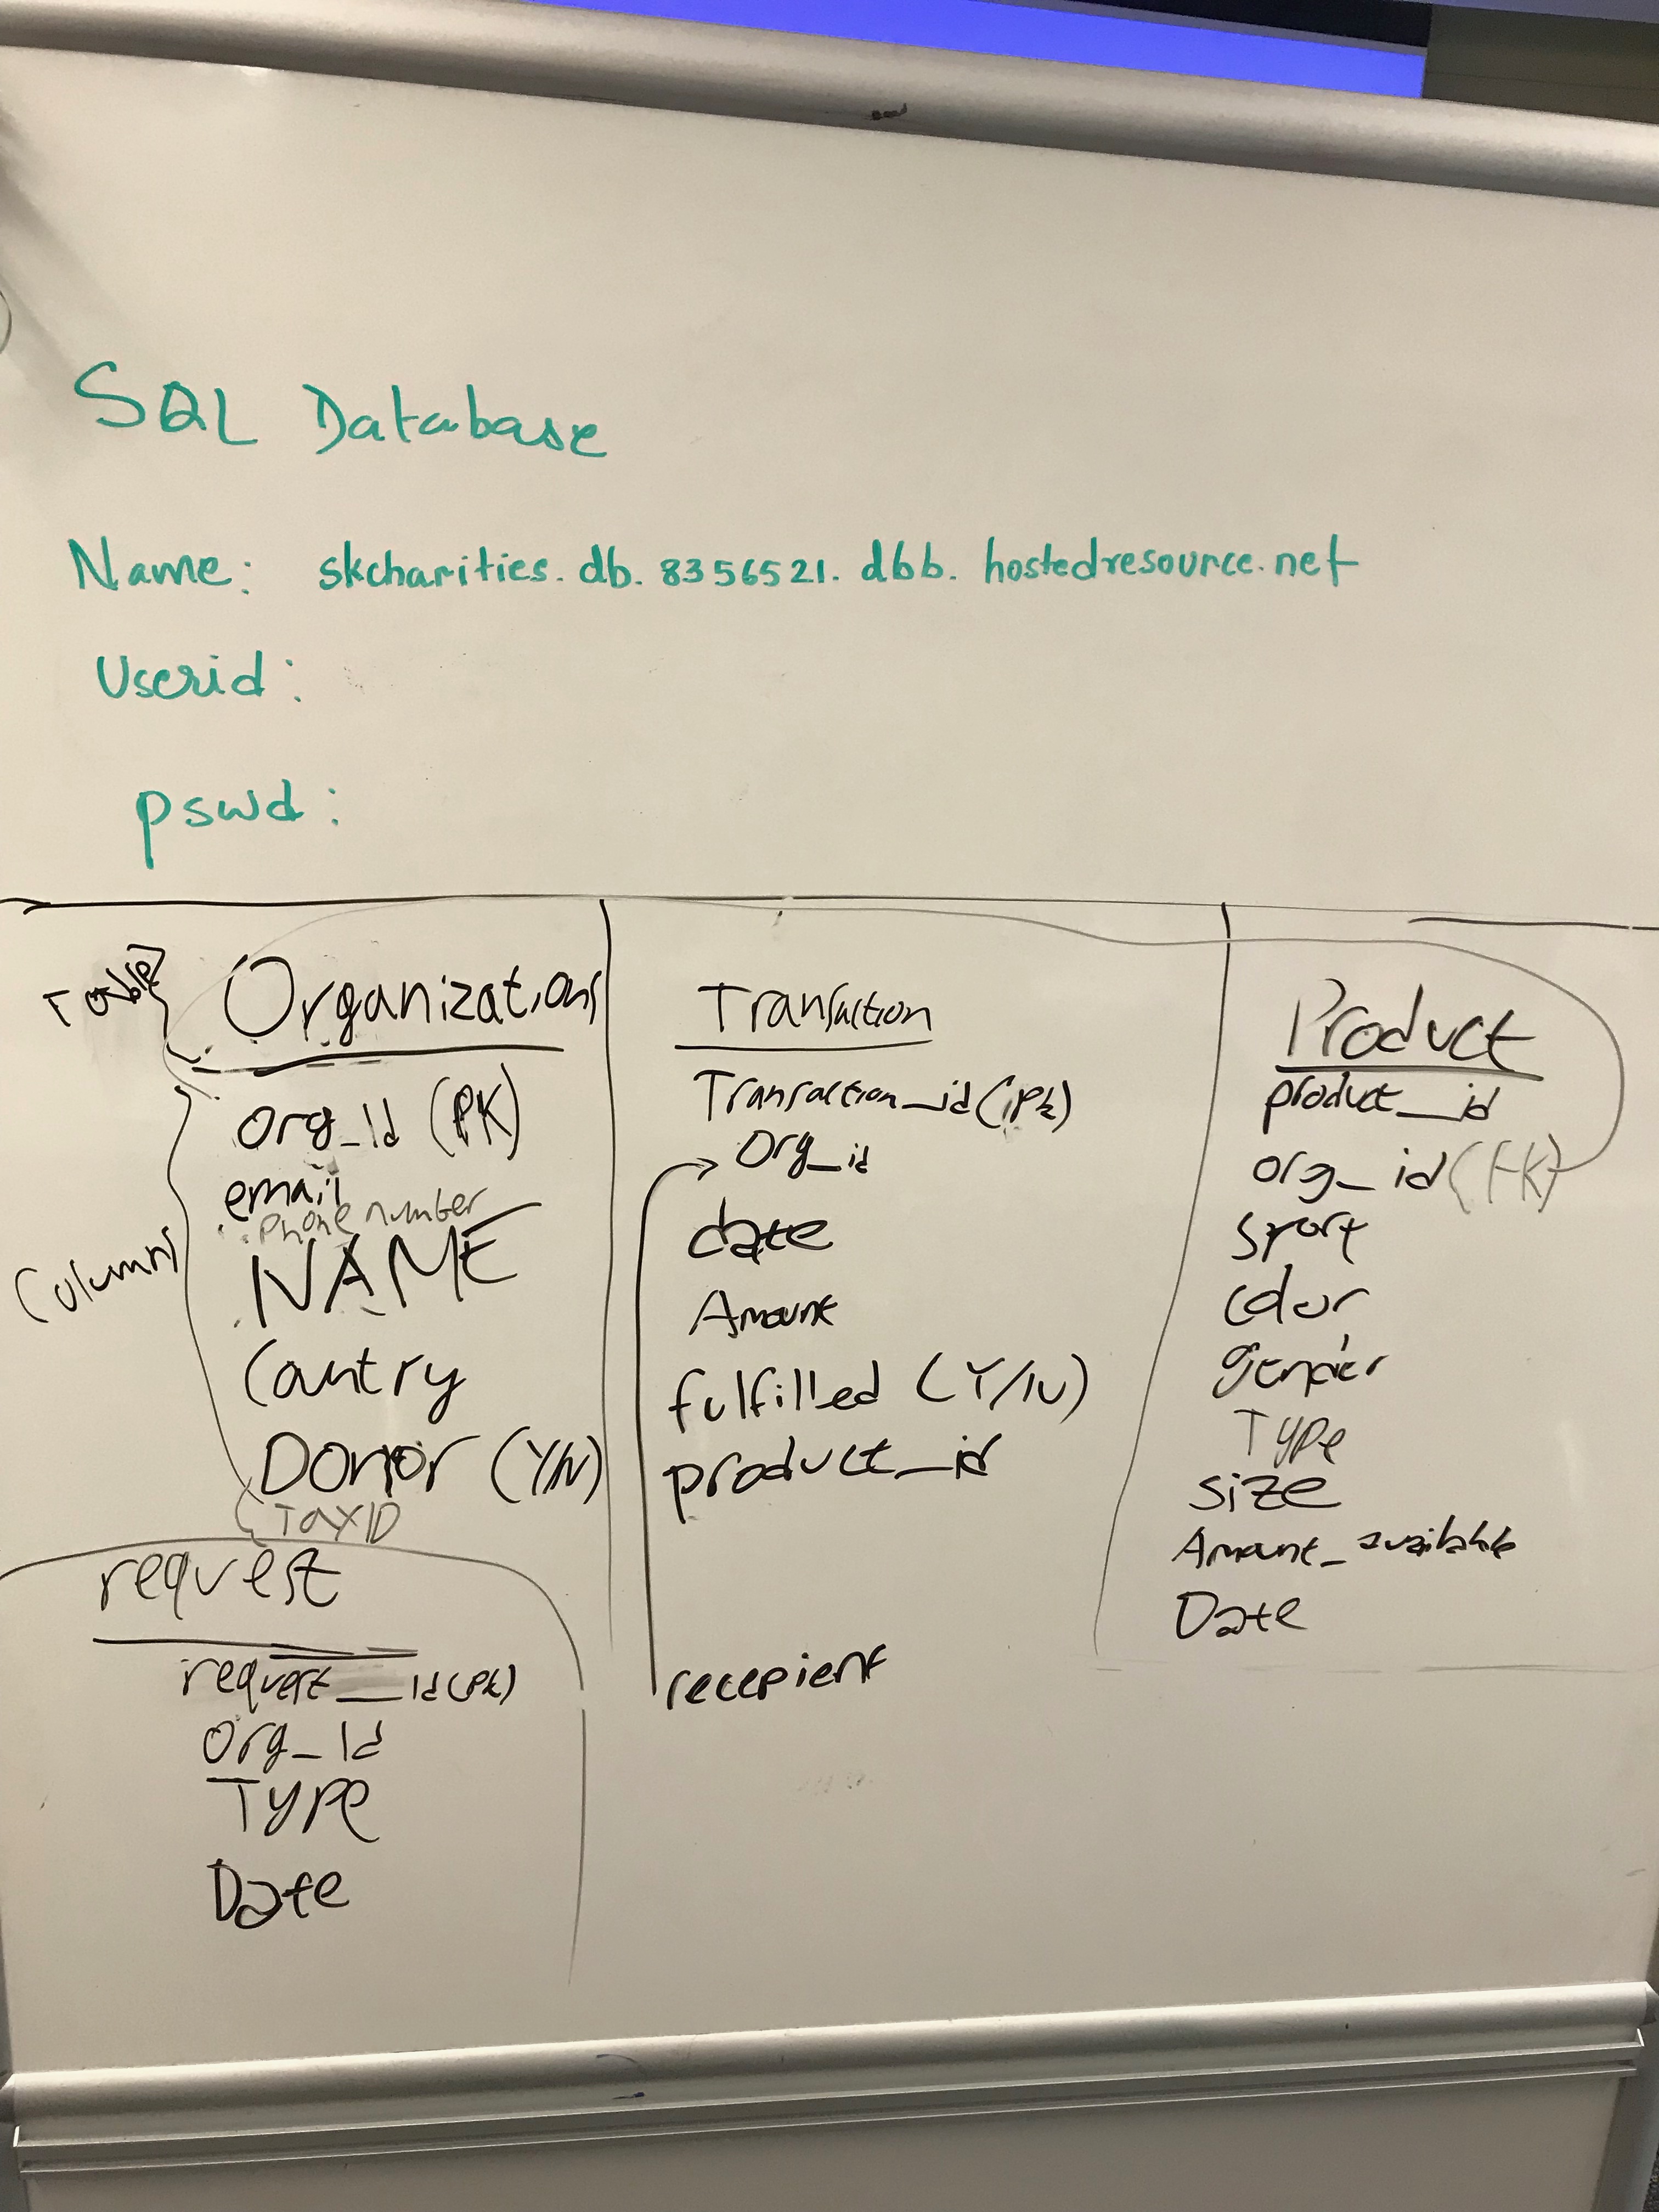 SQL Database
Name: skcharities.db.8356521.dbb.hostedresource.net
Userid:
pswd:
Table
Organizations
Columns
Org_Id (PK)
email
phone number
NAME
Country
Donor (Y/N)
TaxID
request
request_id (PK)
Org_Id
Type
Date
Transaction
Transaction_id (PK)
Org_id
date
Amount
fulfilled (Y/N)
product_id
recepient
Product
product_id
org_id (FK)
sport
color
gender
Type
size
Amount_available
Date